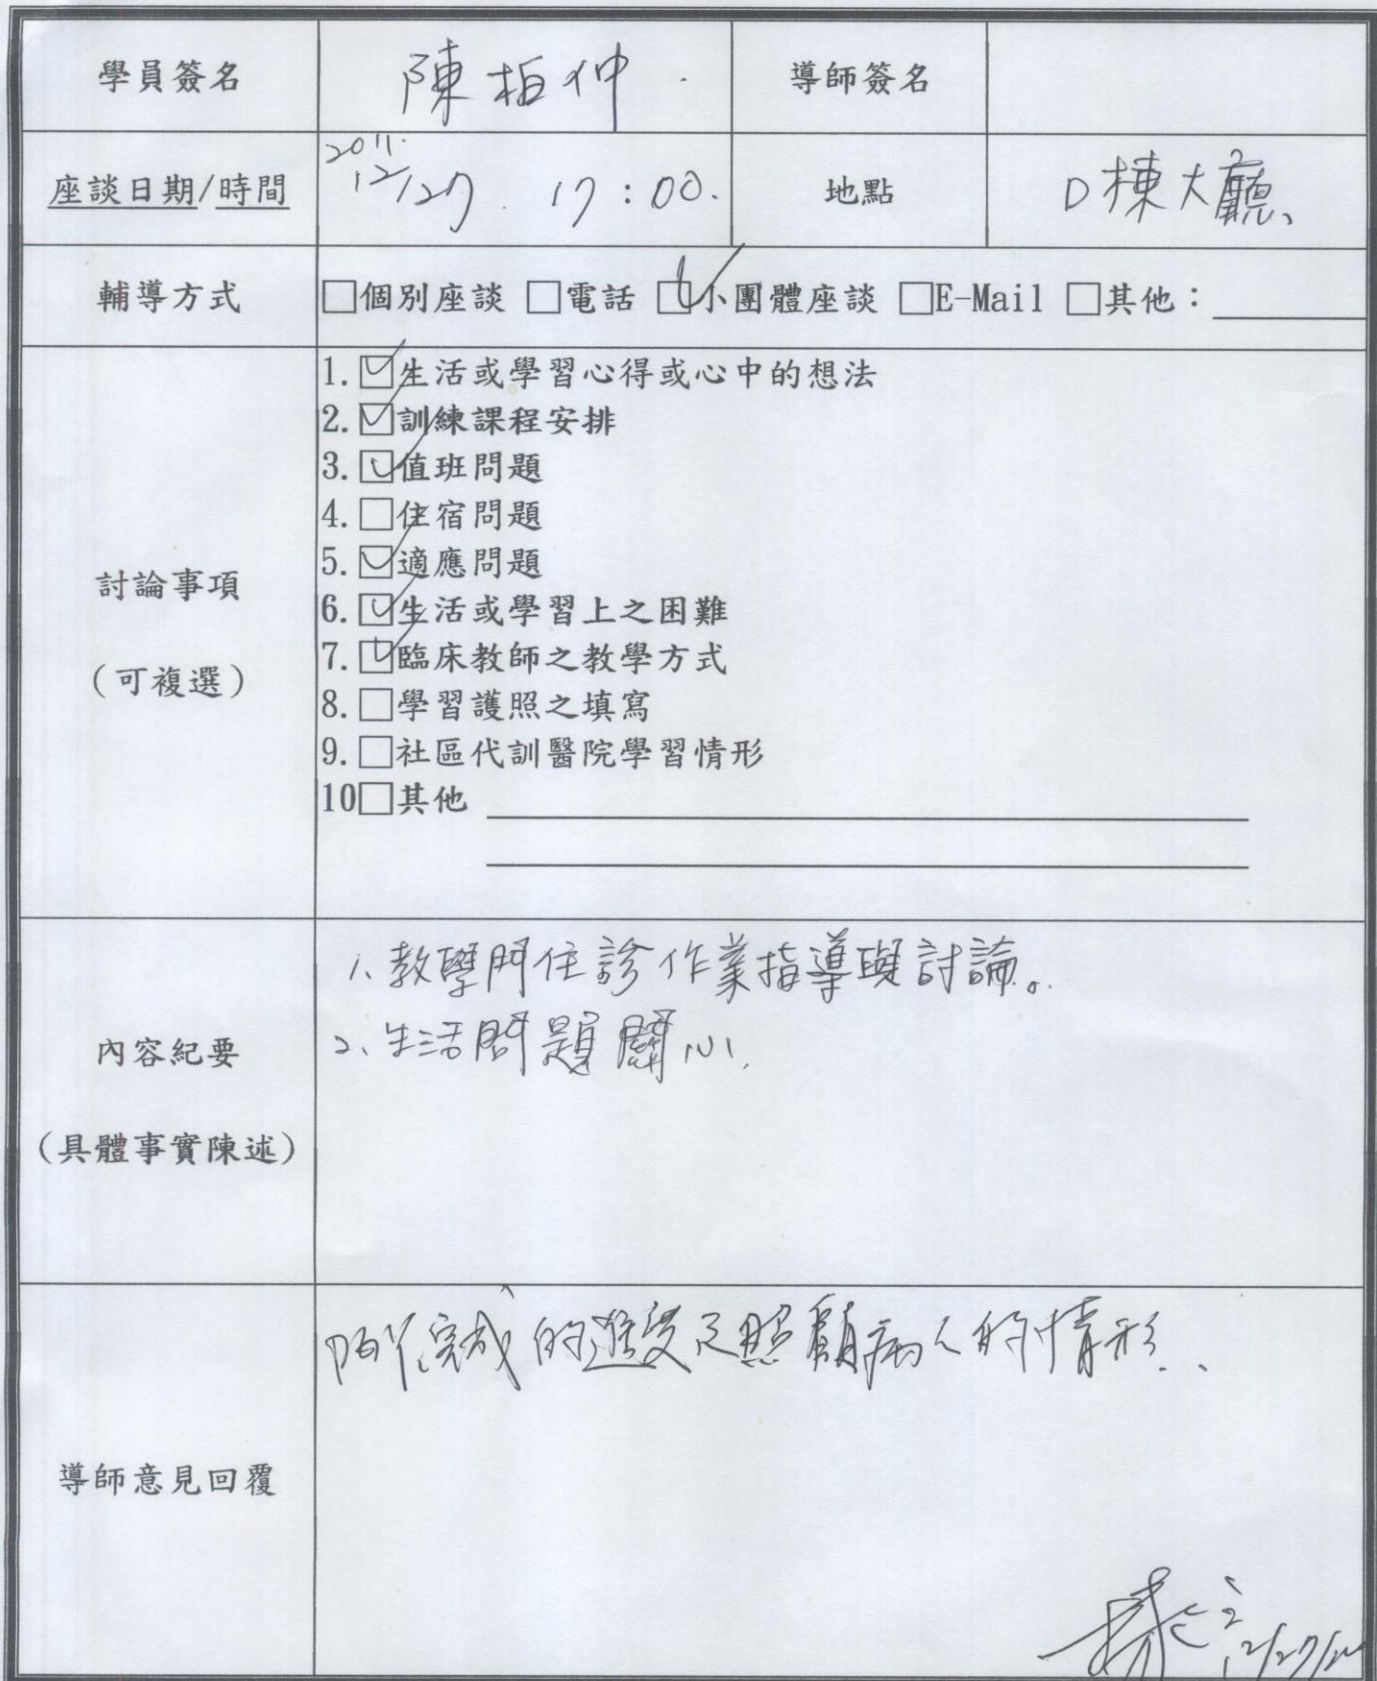 學員簽名 陳柏仲 導師簽名
座談日期/時間 2011. 12/27. 17:00. 地點 D棟大廳、
輔導方式 □個別座談 □電話 ☑小團體座談 □E-Mail □其他：
討論事項
(可複選)
1.☑生活或學習心得或心中的想法
2.☑訓練課程安排
3.☑值班問題
4.□住宿問題
5.☑適應問題
6.☑生活或學習上之困難
7.☑臨床教師之教學方式
8.□學習護照之填寫
9.□社區代訓醫院學習情形
10□其他
內容紀要
(具體事實陳述)
1、教學門住診作業指導與討論。
2、生活問題關心.
導師意見回覆
完成的進度及照顧病人的情形..
12/27/